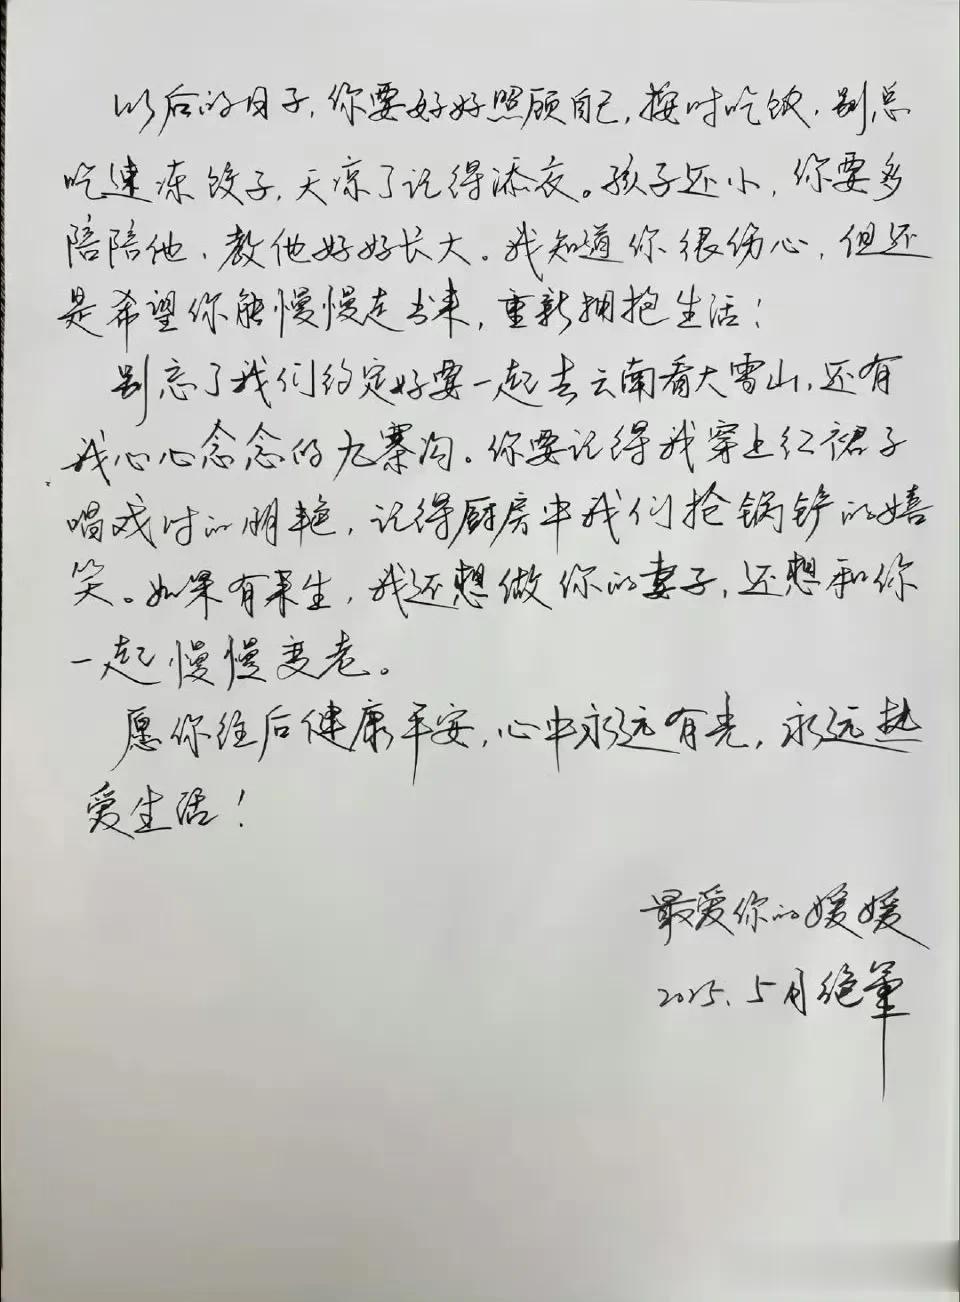 以后的日子，你要好好照顾自己，按时吃饭，别总
吃速冻饺子，天凉了记得添衣。孩子还小，你要多
陪陪他，教他好好长大。我知道你很伤心，但还
是希望你能慢慢走出来，重新拥抱生活！
别忘了我们约定好要一起去云南看大雪山，还有
我心心念念的九寨沟。你要记得我穿上红裙子
唱戏时的明艳，记得厨房中我们抢锅铲的嬉
笑。如果有来生，我还想做你的妻子，还想和你
一起慢慢变老。
愿你往后健康平安，心中永远有光，永远热
爱生活！
最爱你的媛媛
2025.5月绝笔